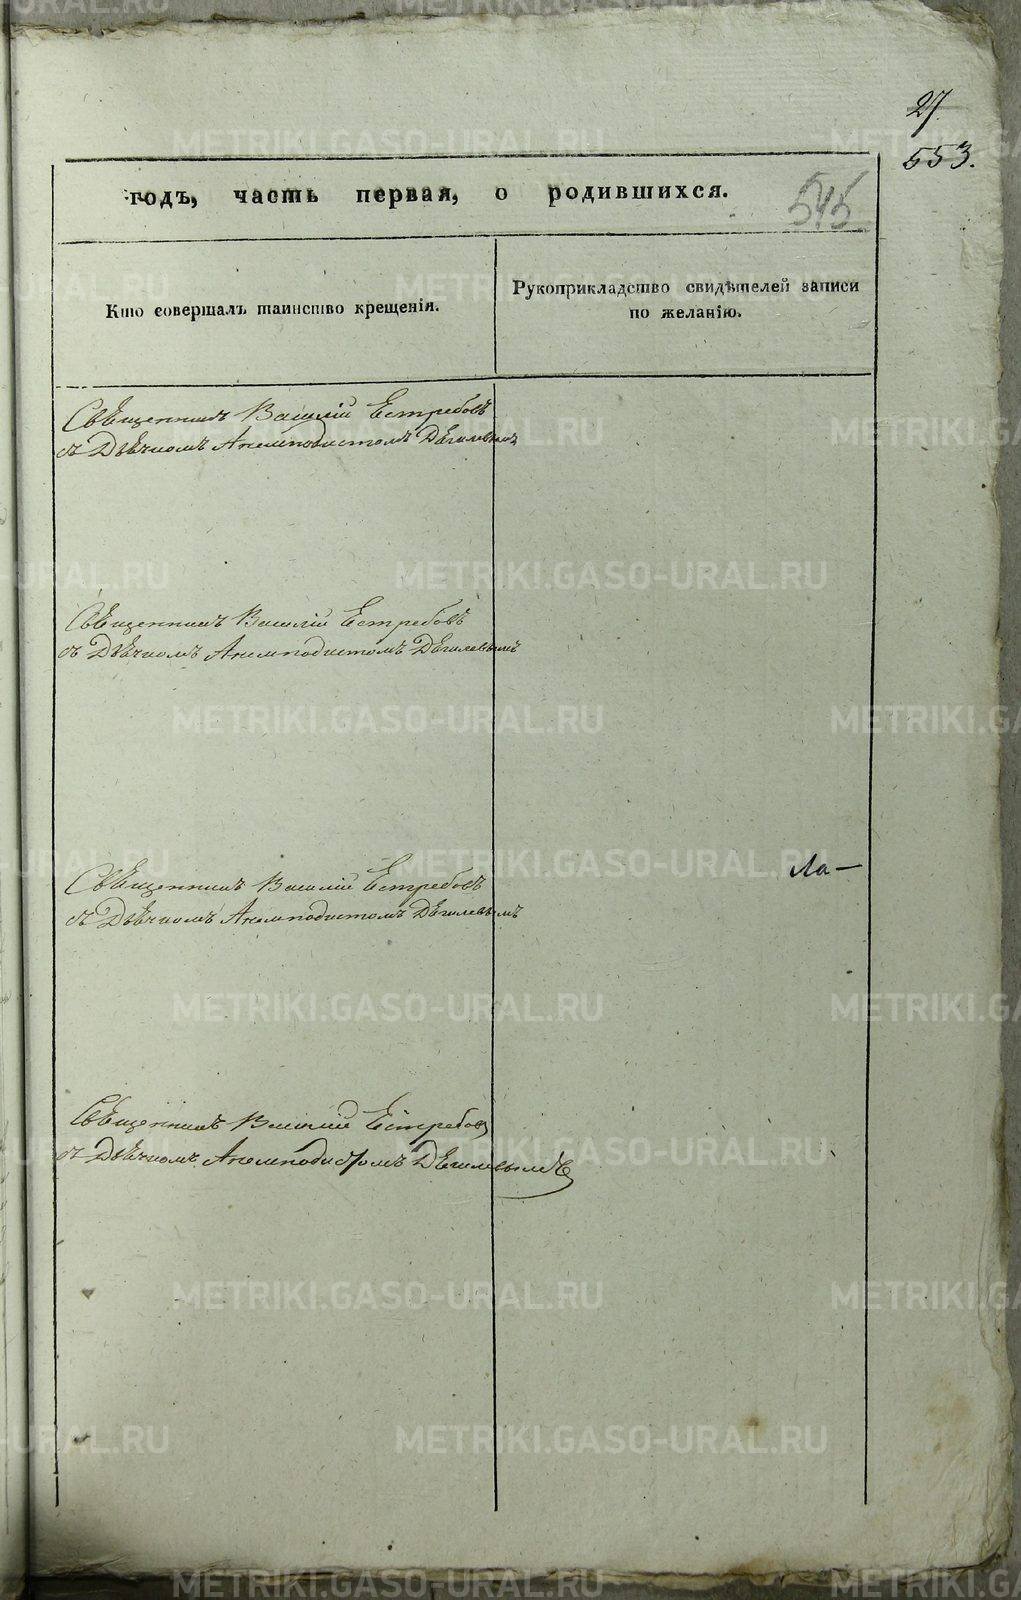 27.
553.
годъ, часть первая, о родившихся.
545
Кто совершалъ таинство крещенія.
Рукоприкладство свидѣтелей записи
по желанію.
Священникъ Василій Естребовъ
съ Дьячкомъ Анемподистомъ Дѣгилевымъ
Священникъ Василій Естребовъ
съ Дьячкомъ Анемподистомъ Дѣгилевымъ
Священникъ Василій Естребовъ
съ Дьячкомъ Анемподистомъ Дѣгилевымъ
Ла—
Священникъ Василій Естребовъ
съ Дьячкомъ Анемподистомъ Дѣгилевымъ
METRIKI.GASO-URAL.RU